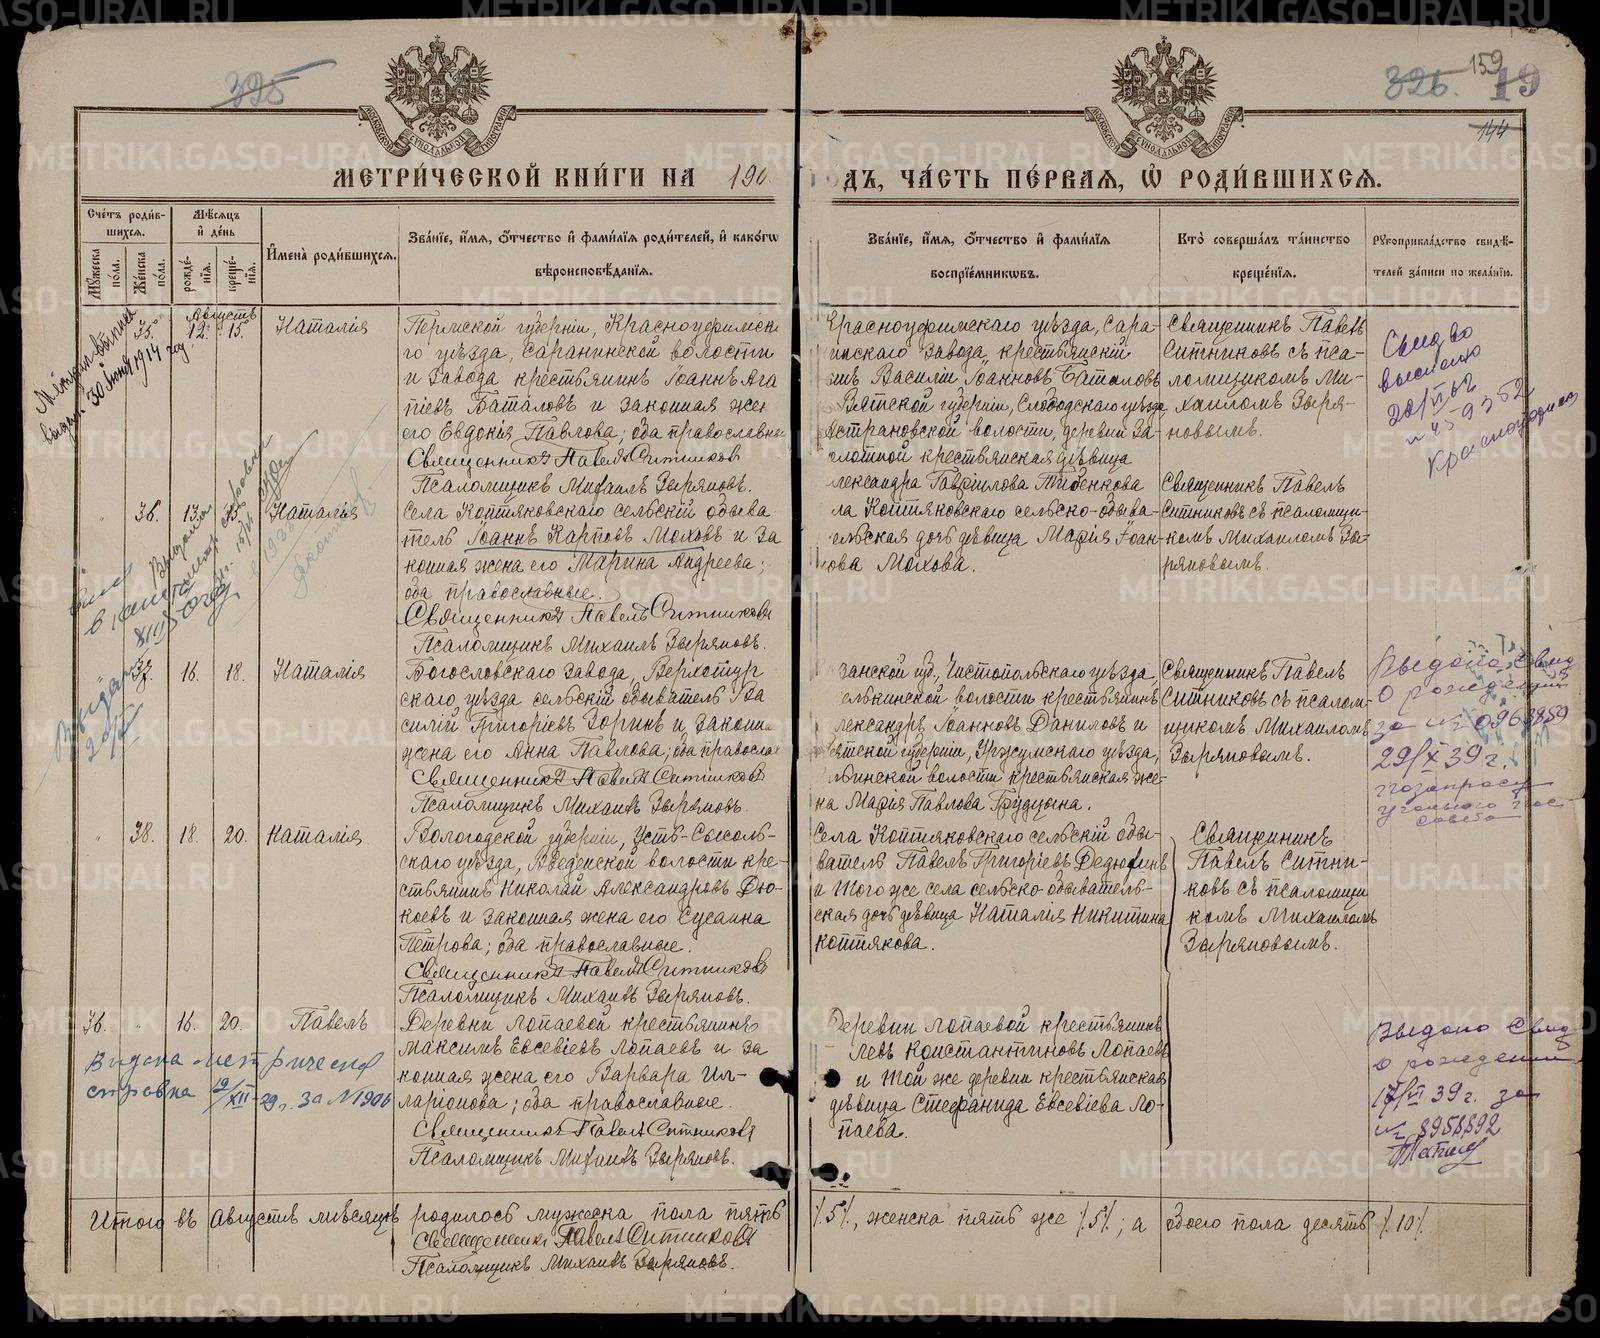 325
326.
159
19
144
МЕТРИ́ЧЕСКОЙ КНИ́ГИ НА 190
ДЪ, ЧА́СТЬ ПЕ́РВАЯ, Ѡ РОДИ́ВШИХСЯ.
Сче́тъ роди́в-
шихся.
Мѣ́сяцъ
и́ де́нь
Мꙋ́жеска по́ла.
Же́нска по́ла.
рожде́-
нїя.
креще́-
нїя.
И́мена̀ роди́вшихся.
Зва́нїе, и́мя, о́тчество и́ фами́лїя роди́телей, и́ како́гѡ
вѣроисповѣ́данїя.
Зва́нїе, и́мя, о́тчество и́ фами́лїя
воспрїе́мникѡвъ.
Кто̀ соверша́лъ та́инство
креще́нїя.
Рꙋкоприкла́дство свидѣ́-
телей за́писи по жела́нїю.
Августъ
35. 12. 15. Наталія
Пермской губерніи, Красноуфимска
го уѣзда, Саранинской волости
и завода крестьянинъ Іоаннъ Ага
піевъ Баталовъ и законная жен
его Евдокія Павлова; оба православны
Священникъ Павелъ Ситниковъ
Псаломщикъ Михаилъ Зыряновъ.
Красноуфимскаго уѣзда, Сара-
нинскаго завода, крестьянскій
сынъ Василій Іоанновъ Баталовъ
Вятской губерніи, Слободскаго уѣзда
Астрановской волости, деревни За-
глотной крестьянская дѣвица
лександра Гавриилова
Священникъ Павелъ
Ситниковъ съ пса-
ломщикомъ Ми-
хаиломъ Зыря-
новымъ.
Свид во
выслано
20/VI 62
Краснодар
30 Июня 1914 год
36. 13. 15. Наталія
Села Коптяковскаго сельскій обыва
тель Іоаннъ Карповъ Моховъ и за
конная жена его Марина Андреева;
оба православные.
Священникъ Павелъ Ситниковъ
Псаломщикъ Михаилъ Зыряновъ.
ла Коптяковскаго сельско-обыва-
тельская дочь дѣвица Марія Іоан-
нова Мохова.
Священникъ Павелъ
Ситниковъ съ псаломщи-
комъ Михаиломъ Зы-
ряновымъ.
37. 16. 18. Наталія
Богословскаго завода, Верхотур
скаго уѣзда сельскій обыватель Ва
силій Григоріевъ Зоринъ и законн
жена его Анна Павлова; оба православ
Священникъ Павелъ Ситниковъ
Псаломщикъ Михаилъ Зыряновъ.
Казанской губ., Чистопольскаго уѣзда,
волости крестьянинъ
лександръ Іоанновъ Даниловъ и
Вятской губерніи, Уржумскаго уѣзда,
волости крестьянская же-
на Марія Павлова Грудцына.
Священникъ Павелъ
Ситниковъ съ псалом-
щикомъ Михаиломъ
Зыряновымъ.
Выдано свид
о рождении
за № 0963859
29/X 39 г.
по запросу
38. 18. 20. Наталія
Вологодской губерніи, Усть-Сысоль-
скаго уѣзда, Введенской волости кре-
стьянинъ Николай Александровъ Дю-
коевъ и законная жена его Сусанна
Петрова; оба православные.
Священникъ Павелъ Ситниковъ
Псаломщикъ Михаилъ Зыряновъ.
Села Коптяковскаго сельскій обы-
ватель Павелъ Григоріевъ Дедюхинъ
и того же села сельско-обыватель-
ская дочь дѣвица Наталія Никитина
Коптякова.
Священникъ
Павелъ Ситни-
ковъ съ псаломщи
комъ Михаиломъ
Зыряновымъ.
36. 16. 20. Павелъ
Деревни Лопаевой крестьянинъ
Максимъ Евсевіевъ Лопаевъ и за
конная жена его Варвара Ил-
ларіонова; оба православные.
Священникъ Павелъ Ситниковъ
Псаломщикъ Михаилъ Зыряновъ.
Деревни Лопаевой крестьянинъ
Левъ Константиновъ Лопаевъ
и той же деревни крестьянская
дѣвица Стефанида Евсевіева Ло-
паева.
Выдана метрическая
справка 19/XII-29 г. за № 906
Выдано свид
о рождении
17/VI 39 г. за
№ 8958892
Итого въ Августѣ мѣсяцѣ родилось мужеска пола пять
Священникъ Павелъ Ситниковъ
Псаломщикъ Михаилъ Зыряновъ.
/.5/., женска пять же /.5/.; а обоего пола десять /.10/.
METRIKI.GASO-URAL.RU